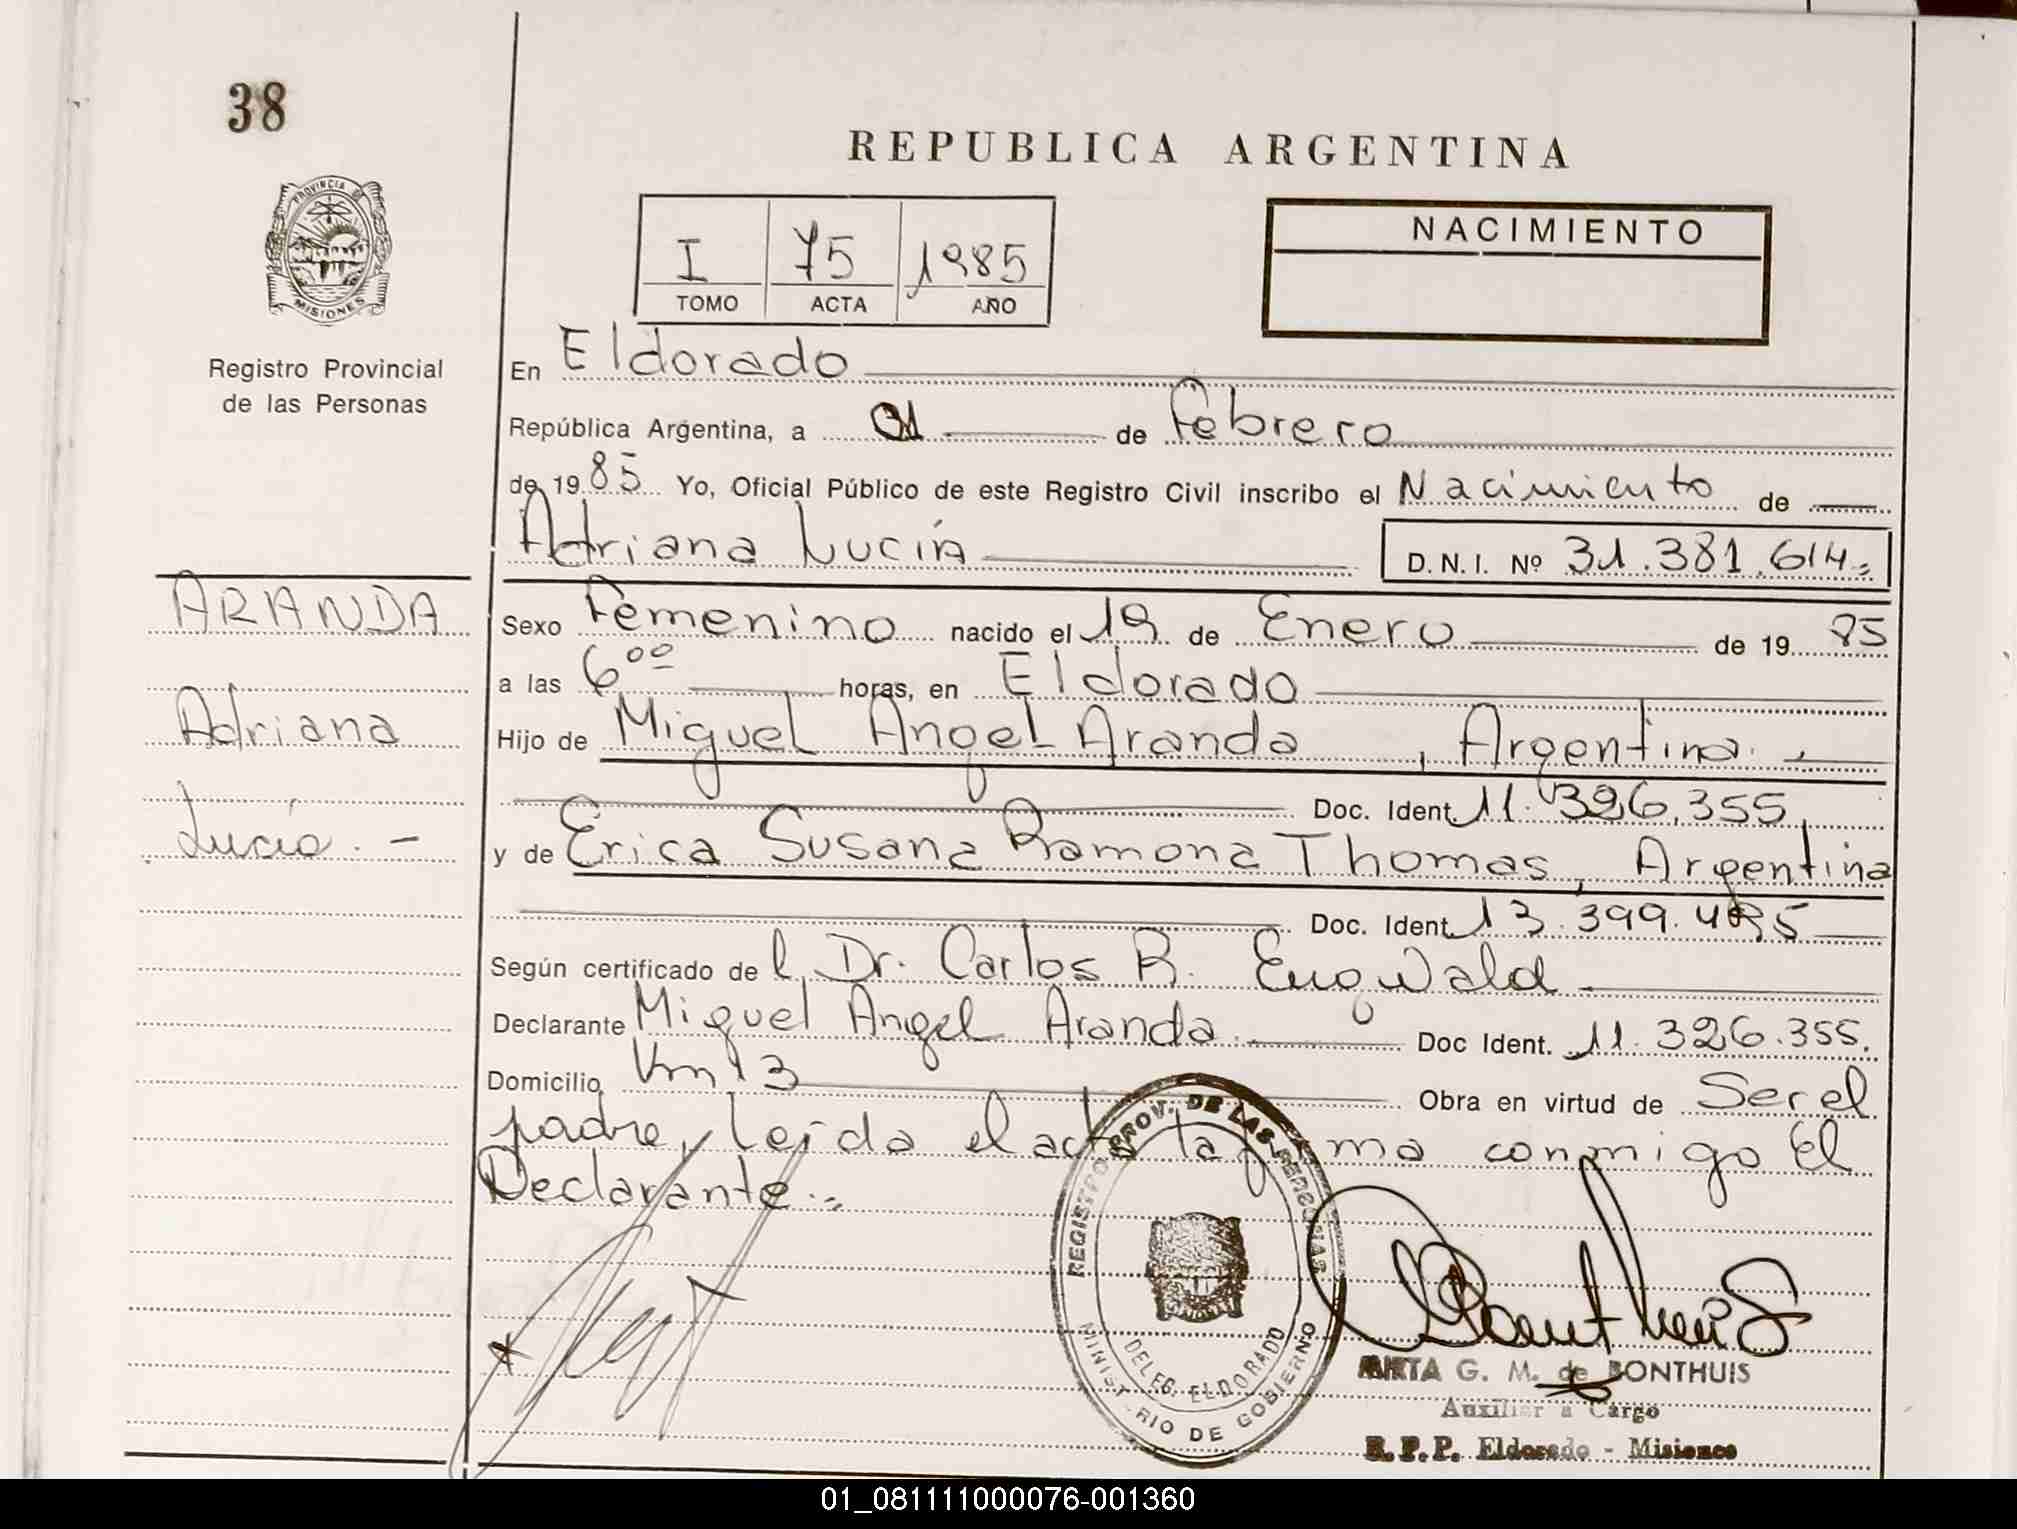 38
REPUBLICA ARGENTINA
PROVINCIA DE
MISIONES
I 75 1985
TOMO ACTA AÑO
NACIMIENTO
Registro Provincial
de las Personas
En Eldorado
República Argentina, a 01 de Febrero
de 1985 Yo, Oficial Público de este Registro Civil inscribo el Nacimiento de
Adriana Lucía
D. N. I. Nº 31.381.614.=
ARANDA
Adriana
Lucía. -
Sexo Femenino nacido el 19 de Enero de 19 85
a las 6 00 horas, en Eldorado
Hijo de Miguel Angel Aranda, Argentina.
Doc. Ident. 11.326.355,
y de Erica Susana Ramona Thomas, Argentina
Doc. Ident. 13.399.
Según certificado del Dr. Carlos R.
Declarante Miguel Angel Aranda. Doc Ident. 11.326.355.
Domicilio Km 13 Obra en virtud de Ser el
padre, Leída el acta la firma conmigo El
Declarante.=
REGISTRO PROV. DE LAS PERSONAS
DELEG. ELDORADO
MINISTERIO DE GOBIERNO
G. M. de BONTHUIS
Auxiliar a Cargo
R. P. P. Eldorado - Misiones
01_081111000076-001360